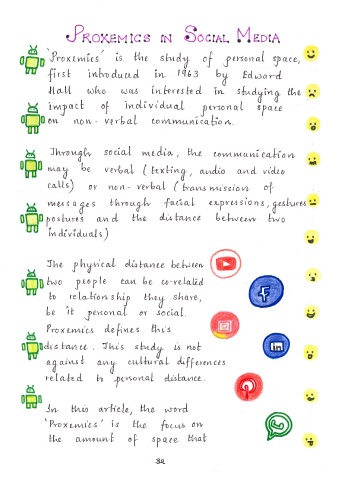 PROXEMICS IN SOCIAL MEDIA
'Proxemics' is the study of personal space,
first introduced in 1963 by Edward
Hall who was interested in studying the
impact of individual personal space
on non-verbal communication.
Through social media, the communication
may be verbal (texting, audio and video
calls) or non-verbal (transmission of
messages through facial expressions, gestures
postures and the distance between two
individuals)
The physical distance between
two people can be co-related
to relationship they share,
be it personal or social.
Proxemics defines this
distance. This study is not
against any cultural differences
related to personal distance.
In this article, the word
'Proxemics' is the focus on
the amount of space that
f
in
32